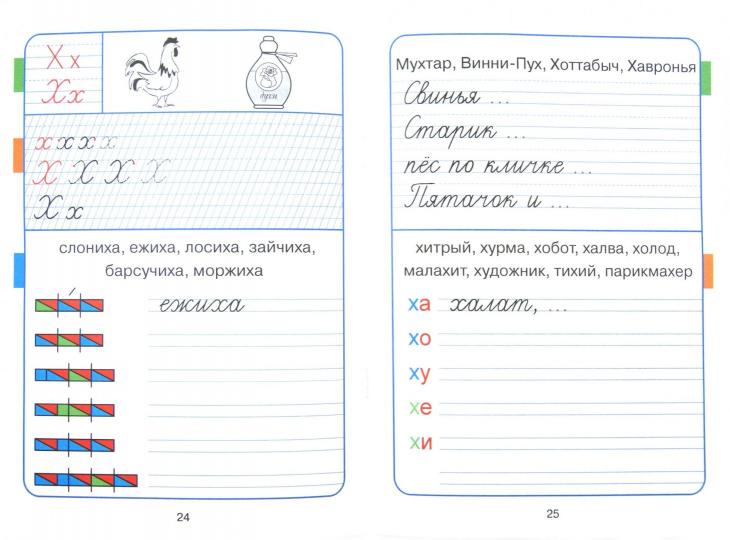 Х х
Х х
духи
х х х х
Х Х Х Х
Х х
слониха, ежиха, лосиха, зайчиха,
барсучиха, моржиха
ежиха
24
Мухтар, Винни-Пух, Хоттабыч, Хавронья
Свинья ...
Старик ...
пёс по кличке ...
Пятачок и ...
хитрый, хурма, хобот, халва, холод,
малахит, художник, тихий, парикмахер
ха халат, ...
хо
ху
хе
хи
25